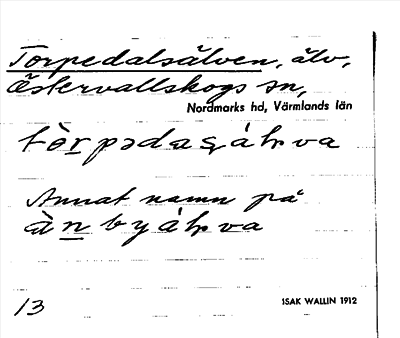 Torpedalsälven, älv,
Östervallskogs sn,
Nordmarks hd, Värmlands län
tòrpədaʂáɫva
Annat namn på
ànbyáɫva
13
ISAK WALLIN 1912